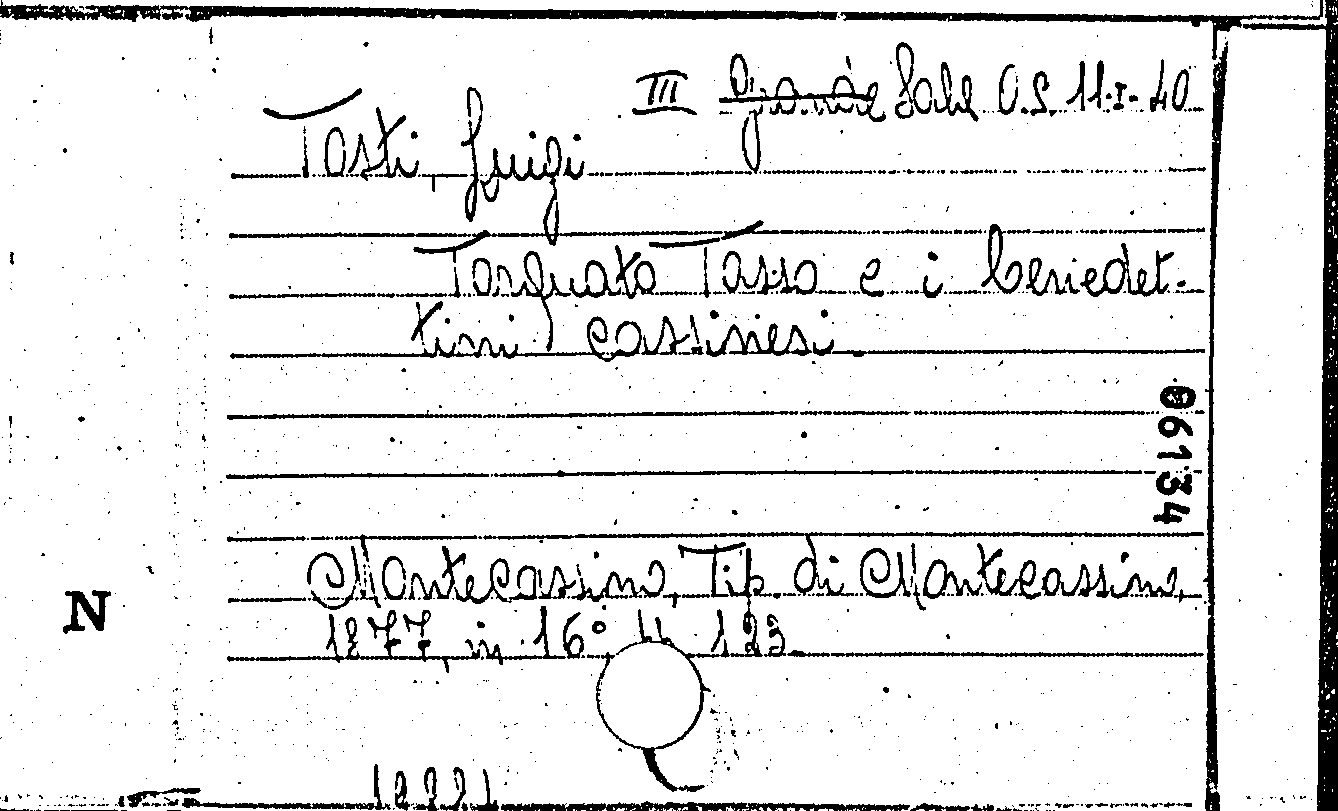 III Grande Sala O.S. 11-I-40
Tosti, Luigi
Torquato Tasso e i benedet-
tini cassinesi.
06134
Montecassino, Tip. di Montecassino,
N
1877, in 16° 123.